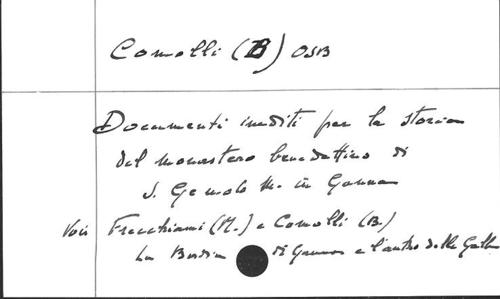 Comolli (B) OSB
Documenti inediti per la storia
del monastero benedettino di
S. Gemolo M. in Ganna
Voir Frecchiami (M.) e Comolli (B.)
La Badia di e l'antro delle Gatte